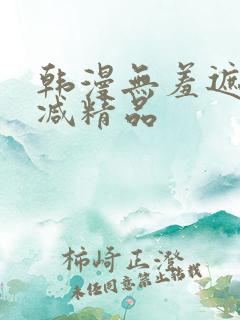 韩漫无羞遮
减精品
柿崎正澄
未经同意禁止转载